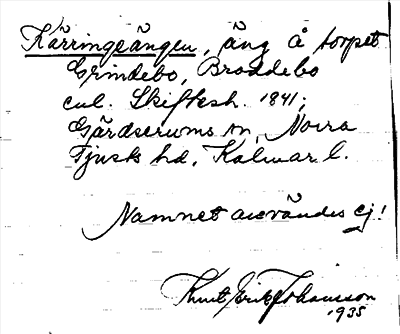 Kärringeängen, äng å torpet
Grindebo, Broddebo
enl. Skiftesh. 1841;
Gärdserums sn, Norra
Tjusts hd, Kalmar l.
Namnet användes ej!
Knut Erik Johansson
1935